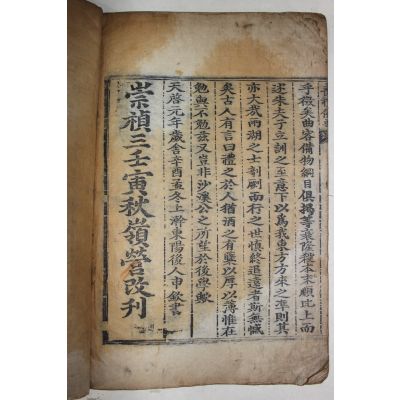 乎微矣曲容備物綱目俱揭等衰隆殺本末顯比上而
述朱夫子立訓之至意下以為我東方方來之準則其
亦大哉兩湖之士剞劂而行之世慎終追遠者斯無憾
矣古人有言曰禮之於人猶酒之有糵以厚以薄惟在
勉與不勉玆又豈非沙溪公之所望於後學歟
天啓元年歲舍辛酉孟冬上澣東陽後人申欽書
崇禎三壬寅秋嶺營改刊